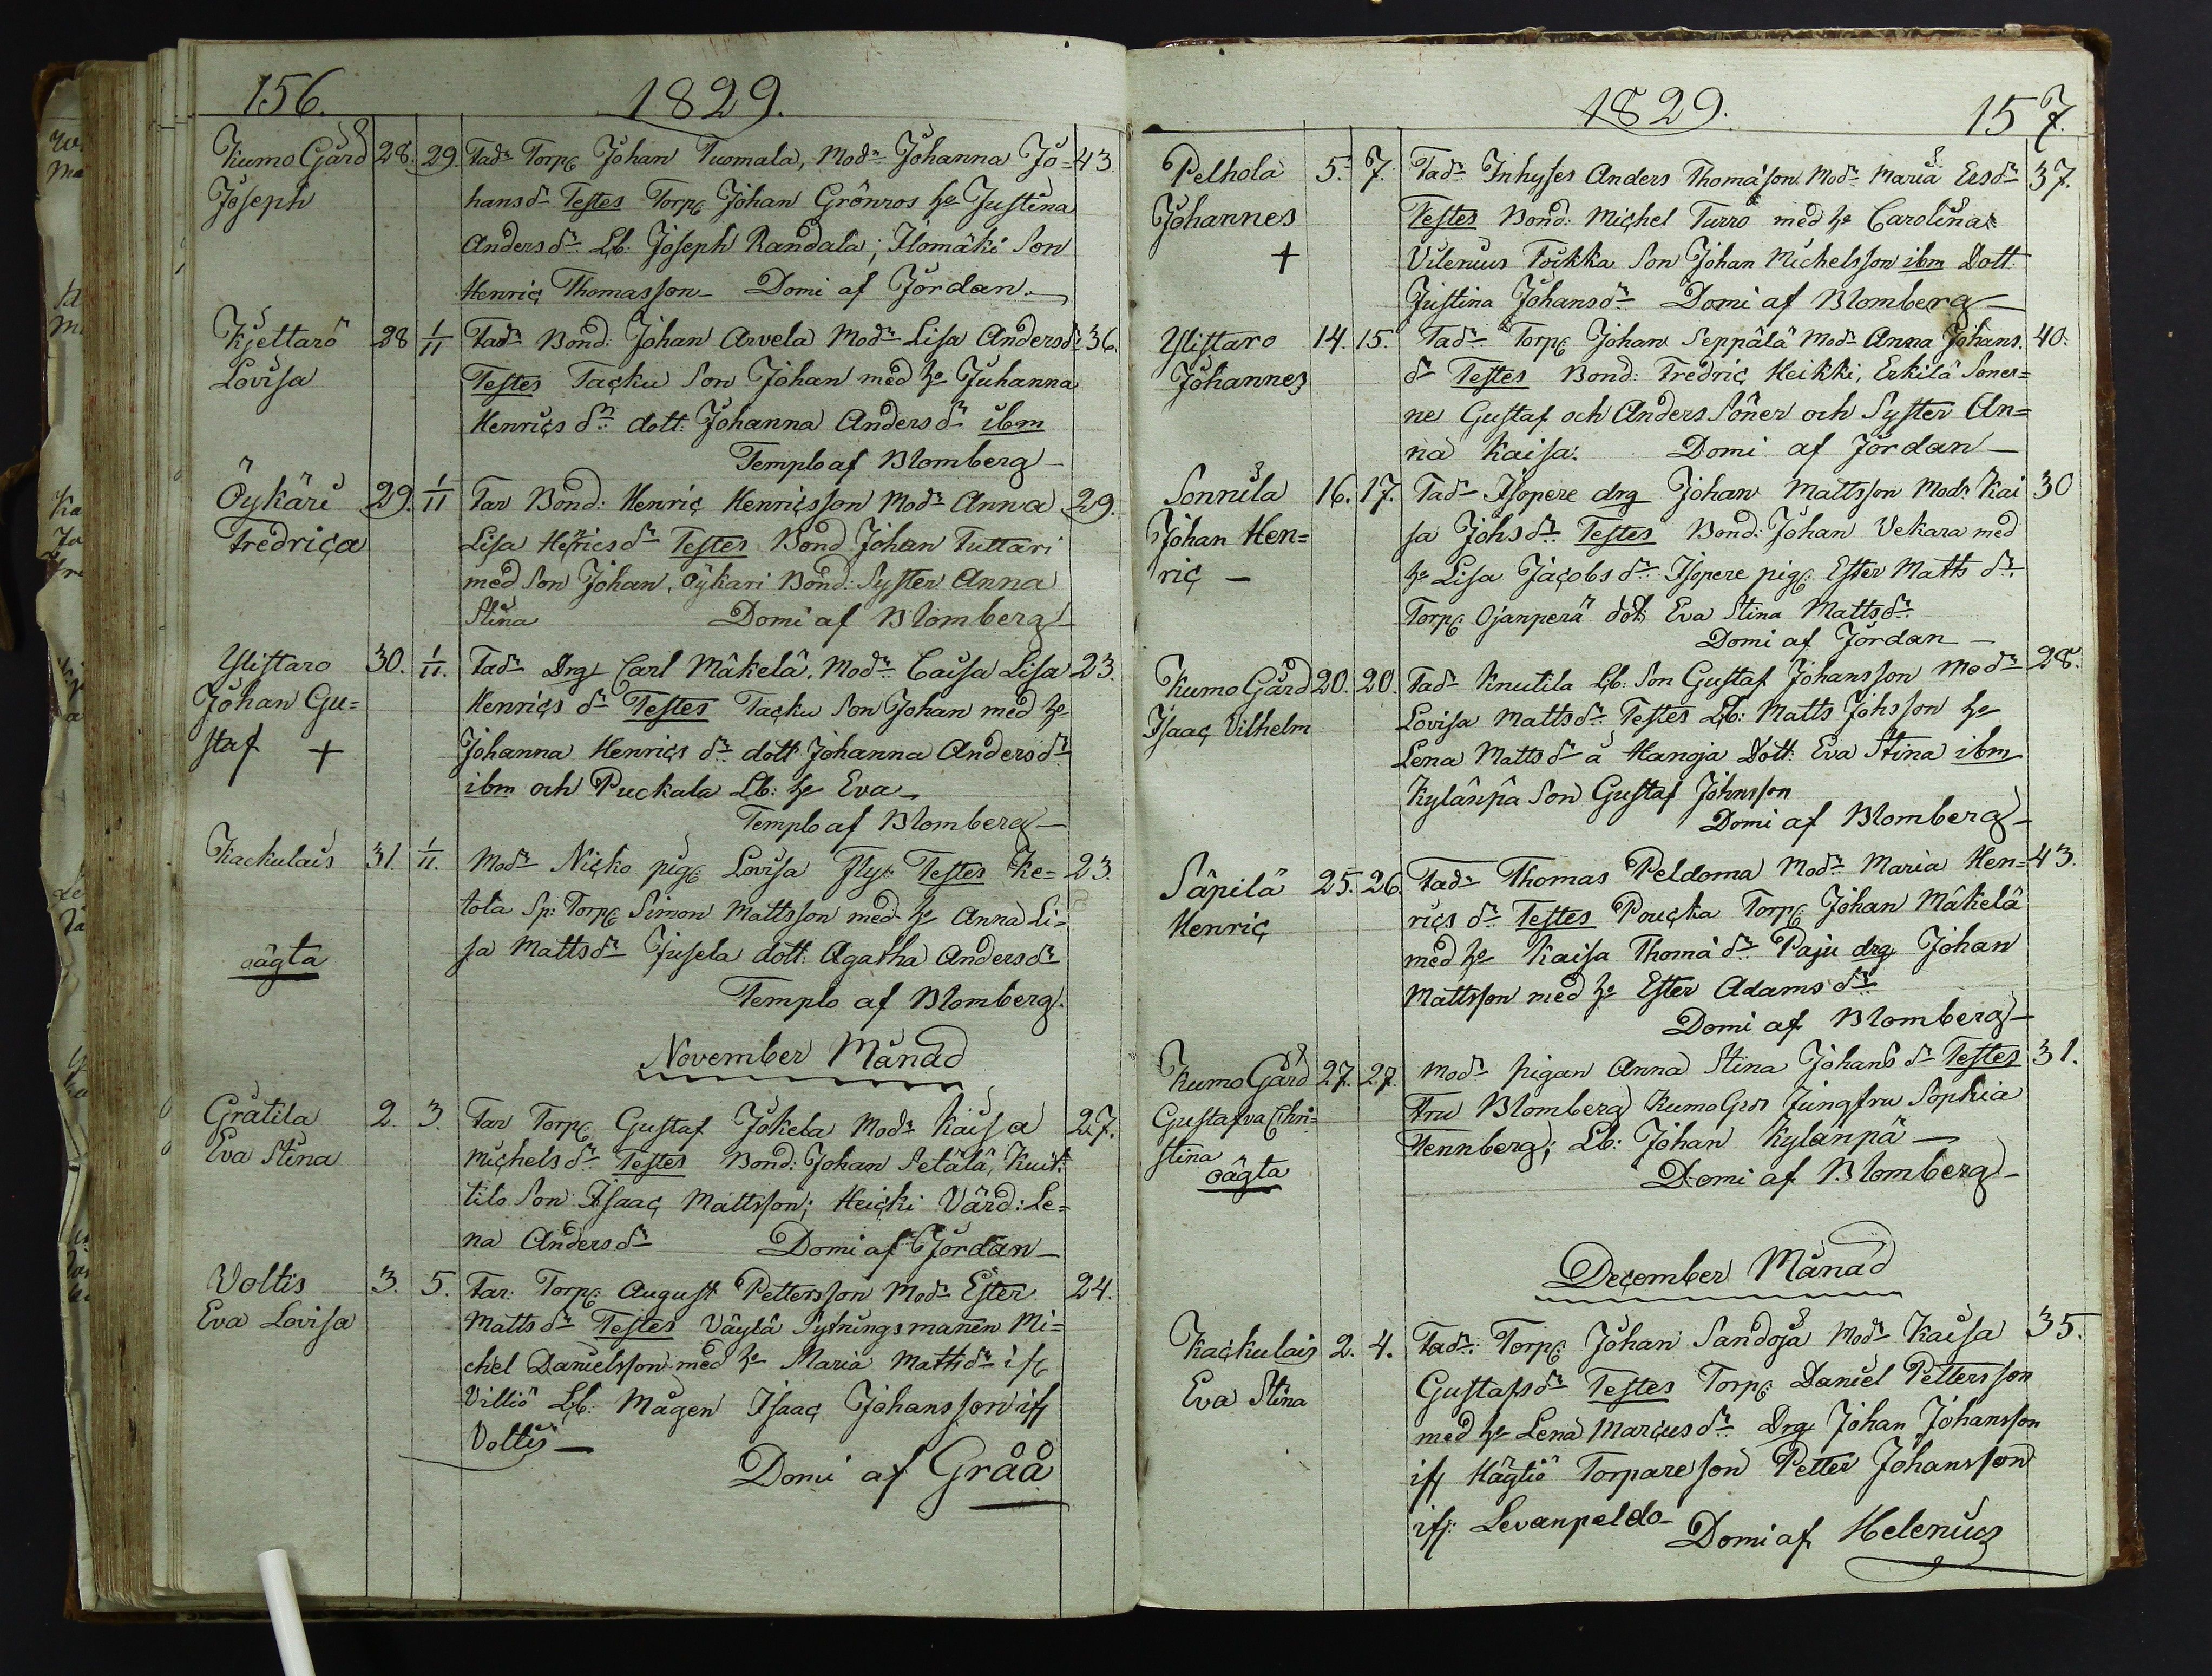 156. 1829.
Kumo Gård 28. 29. Fadr Torp Johan Tuomala, Modr Johanna Jo= 43.
Joseph hansdr Testes Torp Johan Grönros hu Justina
Andersdr Lb. Joseph Randala; Ilomäki Son
Henric Thomasson — Domi af Jordan —
Kjettarö 28 1/11 Fadr Bond: Johan Arvela Modr Lisa Andersdr 36.
Lovisa Testes Tacku Son Johan med hu Juhanna
Henricsdr dott: Johanna Andersdr ibm
Templo af Blomberg —
Öykäri 29. 1/11 Far Bond: Henric Henricsson Modr Anna 29.
Fredrica Lisa Henricsdr Testes Bond Johan Tuttari
med Son Johan, Öykari Bond: Syster Anna
Stina Domi af Blomberg —
Ylistaro 30. 1/11. Fadr Drg Carl Mäkelä, Modr Caisa Lisa 23.
Johan Gu= Henricsdr Testes Tacku Son Johan med hu
staf + Johanna Henricsdr dott Johanna Andersdr
ibm och Puckala Lb: hu Eva —
Templo af Blomberg —
Kackulais 31. 1/11. Modr Nicko pig Lovisa Testes Ke= 23.
tola Sp: Torp Simon Mattsson med hu Anna Li=
oägta sa Mattsdr Jusela dott: Agatha Andersdr
Templo af Blomberg.
November Månad
Gratila 2. 3. Far Torp Gustaf Jokela Modr Kaisa 27.
Eva Stina Michelsdr Testes Bond: Johan Setälä, Kuit:
tilo Son Isaac Mattsson; Heicki Värd: Le=
na Andersdr Domi af Jordan —
Voltis 3. 5. Far: Torp August Pettersson Modr Ester 24.
Eva Lovisa Mattsdr Testes Väylä Sytningsmanen Mi=
chel Danielsson med hu Maria Mattsdr if
Villiö Lb: Mågen Isaac Johansson if
Voltis —
Domi af Gråå
1829. 157.
Pelhola 5. 7. Fadr Inhyses Anders Thomasson Modr Maria Ersdr 37.
Johannes Testes Bond: Michel Turro med hu Carolina
+ Vilenius Toikka Son Johan Michelsson ibm Dott
Justina Johansdr Domi af Blomberg —
Ylistaro 14. 15. Fadr Torp Johan Seppälä Modr Anna Johans 40.
Johannes dr Testes Bond: Fredric Heikki, Erkilä Soner=
ne Gustaf och Anders Söner och Syster An=
na Kaisa. Domi af Jordan —
Sonnila 16. 17. Fadr Isopere drg Johan Mattsson Modr Kai 30
Johan Hen= sa Johsdr Testes Bond: Johan Vekara med
ric — hu Lisa Jacobsdr Isopere pig Ester Mattsdr
Torp Ojanperä dot Eva Stina Mattsdr
Domi af Jordan —
Kumo Gård 20. 20. Fadr Knutila Lb: Son Gustaf Johansson Modr 28.
Isaac Vilhelm Lovisa Mattsdr Testes Lb: Matts Johsson hu
Lena Mattsdr a Hanoja Dott: Eva Stina ibm
Kylänpä Son Gustaf Johnsson
Domi af Blomberg —
Säpilä 25. 26. Fadr Thomas Peldoma Modr Maria Hen= 43.
Henric ricsdr Testes Poucka Torp Johan Mäkelä
med hu Kaisa Thomadr Paju drg Johan
Mattsson med hu Ester Adamsdr
Domi af Blomberg —
Kumo Gård 27. 27. Modr Pigan Anna Stina Johansdr Testes 31.
Gustafva Chri= Fru Blomberg Kumo Grd Jungfru Sophia
stina Tennberg; Lb: Johan Kylänpä —
oägta Domi af Blomberg —
December Månad
Kackulais 2. 4. Fadr: Torp Johan Sandoja Modr Kaisa 35.
Eva Stina Gustafsdr Testes Torp: Daniel Pettersson
med hu Lena Marcusdr Drg Johan Johansson
if Hägliö Torpareson Petter Johansson
if: Levanpeldo — Domi af Helenius